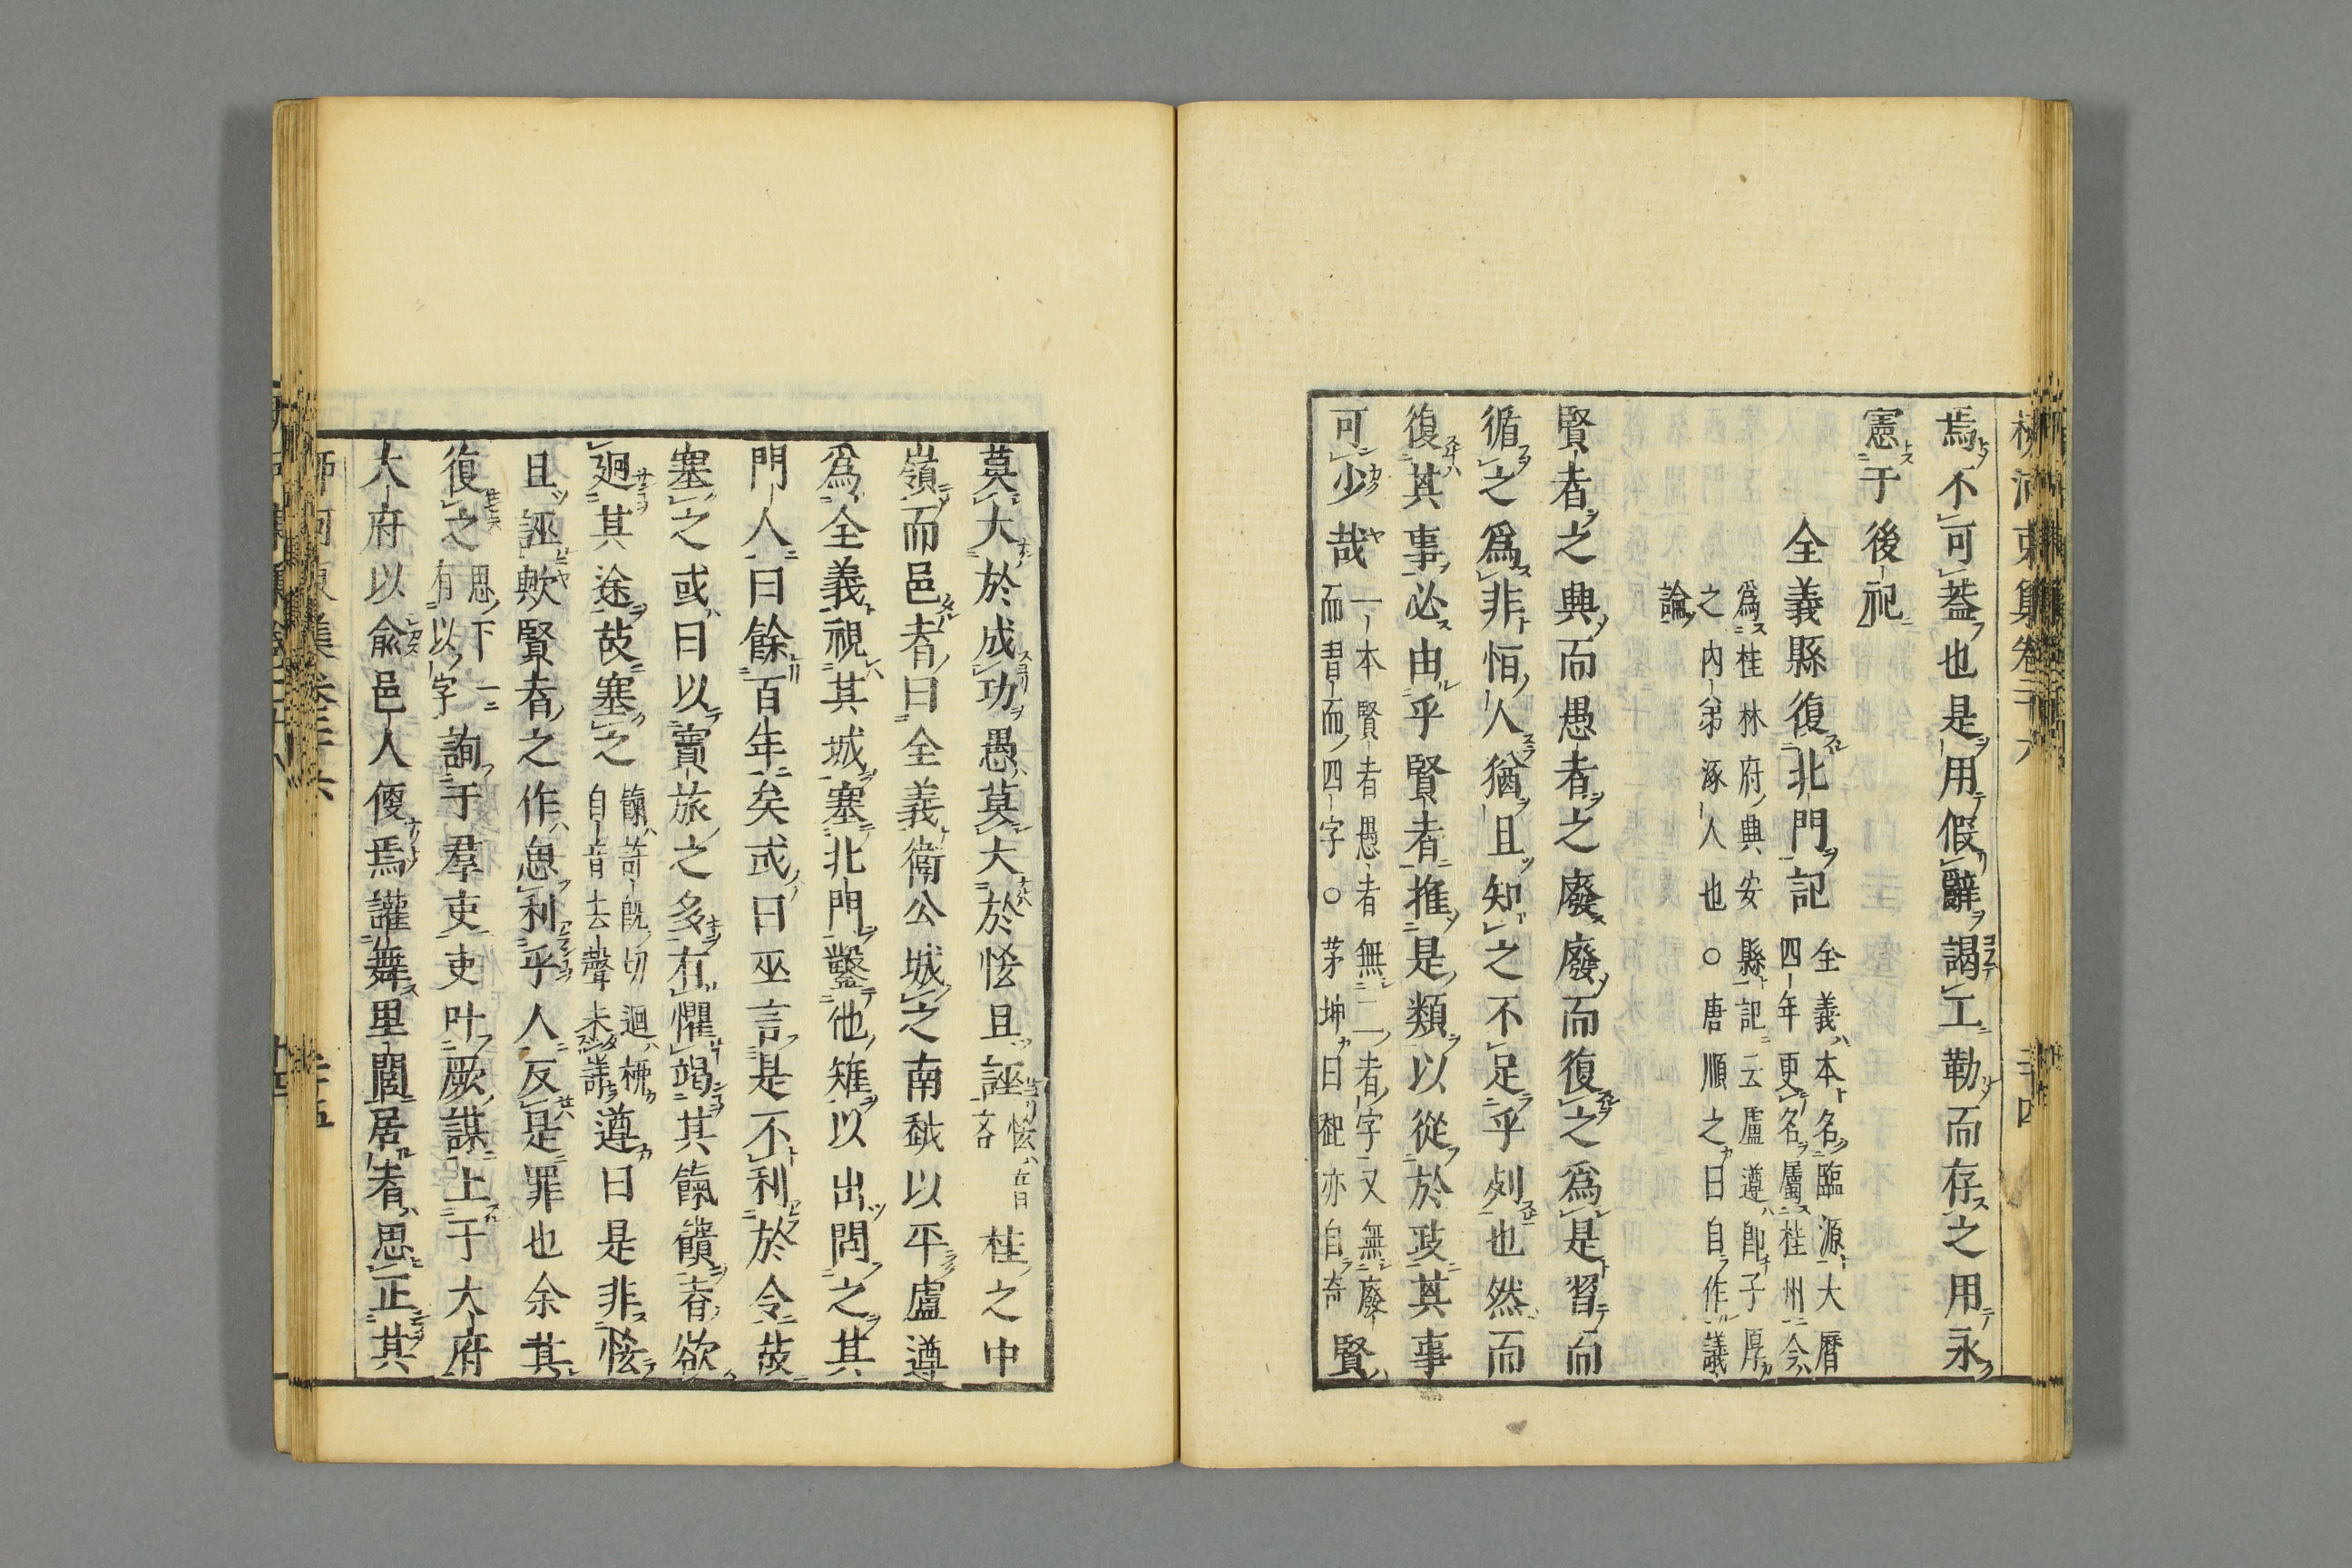 柳河東集卷二十六
焉不可葢也是用假辭謁工勒而存之用永
憲于後祀
全義縣復北門記
全義本名臨源大曆
四年更名屬桂州今
爲桂林府典安縣記云盧遵卽子厚
之内弟涿人也○唐順之曰自作議
論
賢者之典而愚者之廢廢而復之爲是習而
循之爲非恒人猶且知之不足乎列也然而
復其事必由乎賢者推是類以從於政其事
可少哉
一本賢者愚者無二者字又無廢
而書而四字○茅坤曰卽亦自奇
賢
莫大於成功愚莫大於恡且誣
恡在日
吝
桂之中
嶺而邑者曰全義衛公城之南越以平盧遵
爲全義視其城塞北門鑿他雉以出問之其
門人曰餘百年矣或曰巫言是不利於令故
塞之或曰以賓旅之多有懼竭其餼饋者欲
廻其途故塞之
餼許既切廻柳
自音去聲未詳
遵曰是非恡
且誣歟賢者之作思利乎人反是罪也余其
復之
思下一
有以字
詢于羣吏吏叶厥謀上于大府
大府以兪邑人便焉讙舞里閭居者思正其